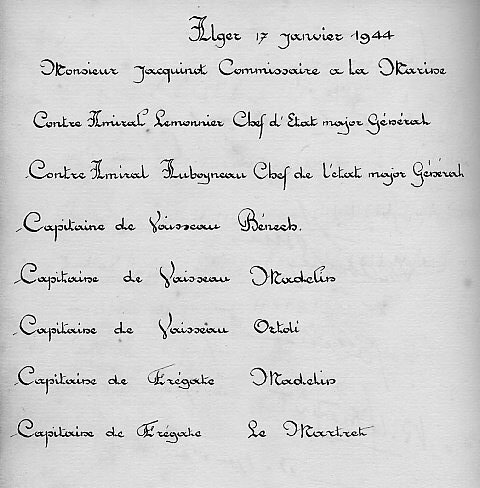 Alger 17 janvier 1944
Monsieur Jacquinot Commissaire a la Marine
Contre Amiral Lemonnier Chef d'Etat major Général
Contre Amiral Auboyneau Chef de l'état major Général
Capitaine de Vaisseau Bénech.
Capitaine de Vaisseau Madelin
Capitaine de Vaisseau Ortoli
Capitaine de Frégate Madelin
Capitaine de Frégate Le Martret